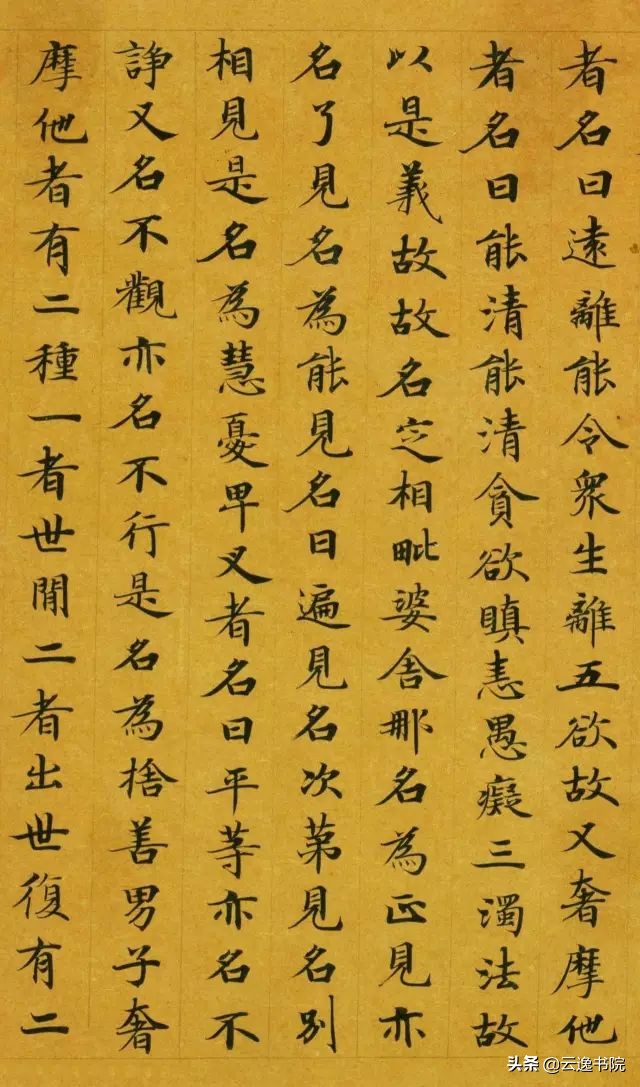 者名曰遠離能令衆生離五欲故又奢摩他
者名曰能清能清貪欲瞋恚愚癡三濁法故
以是義故故名定相毗婆舍那名為正見亦
名了見名為能見名曰遍見名次第見名別
相見是名為慧憂畢叉者名曰平等亦名不
諍又名不觀亦名不行是名為捨善男子奢
摩他者有二種一者世閒二者出世復有二
头条 @云逸书院